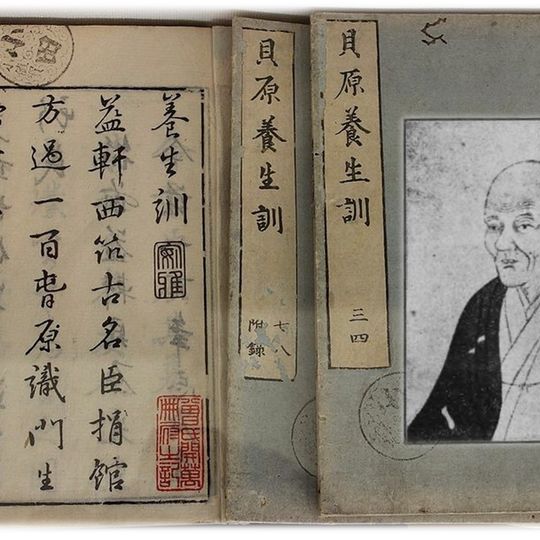 貝原養生訓
三四
貝原養生訓
七八
附録
養生訓
益軒西筑古名臣捐館
方過一百旾原識門生